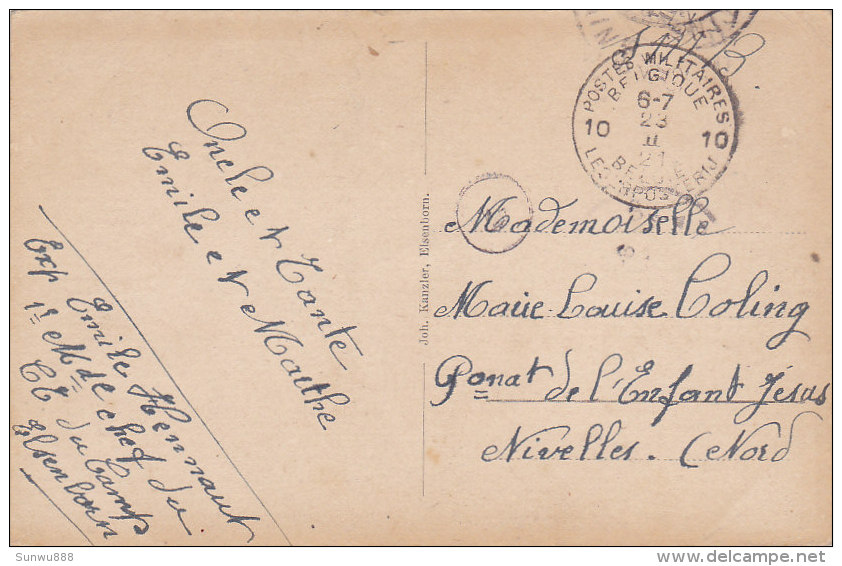 Oncle et Tante
Emile et Marthe
Exp Emile Hennaut
1r Mal de chef du
Ct du Camp
Elsenborn
Joh. Kanzler, Elsenborn.
S.M.B
POSTES MILITAIRES
BELGIQUE
6-7
23
II
21
10 10
BELGIE
LEGERPOSTERIJ
Mademoiselle
Marie-Louise Coling
Ponat de l'Enfant Jésus
Nivelles. (Nord
Sunwu888
delcampe.net